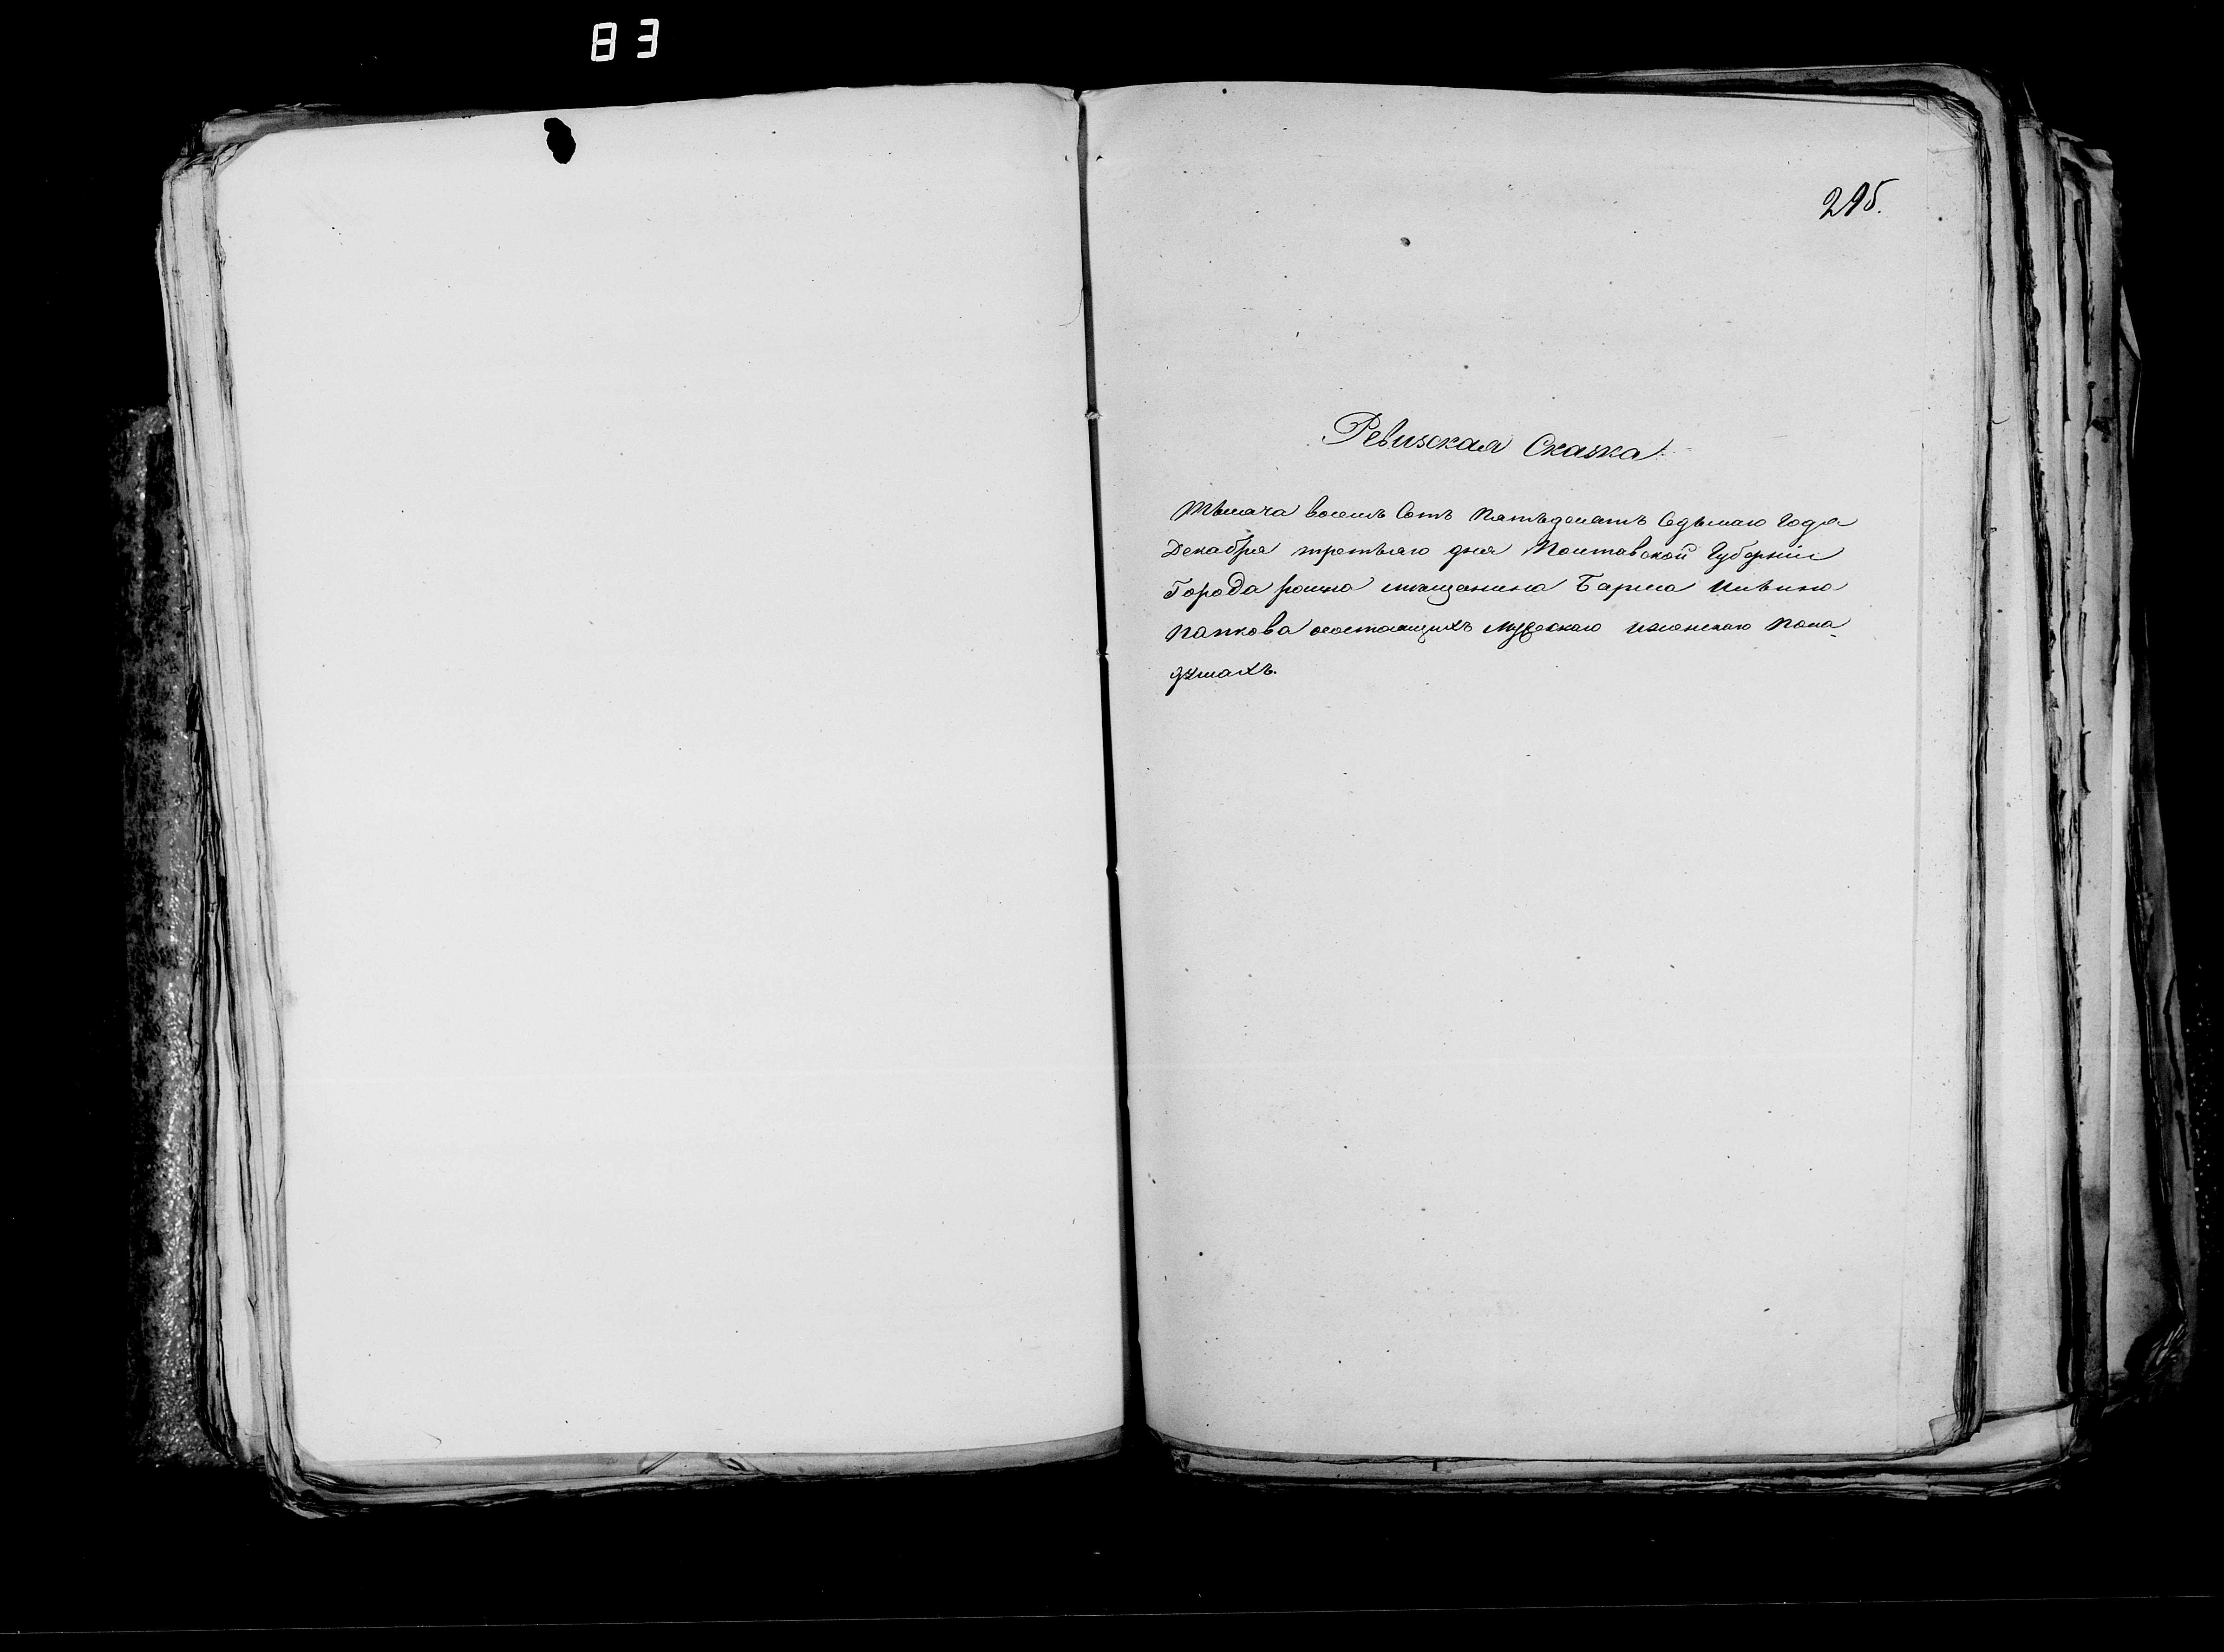 83
295.
Ревизская Сказка
Тысяча восемь Сотъ Пятьдесятъ Седьмаго Года
Декабря третьяго дня Полтавской Губерніи
Города ромна мещанина Бариса
папкова осостоящихъ мужескаго иженскаго Пола
душахъ.